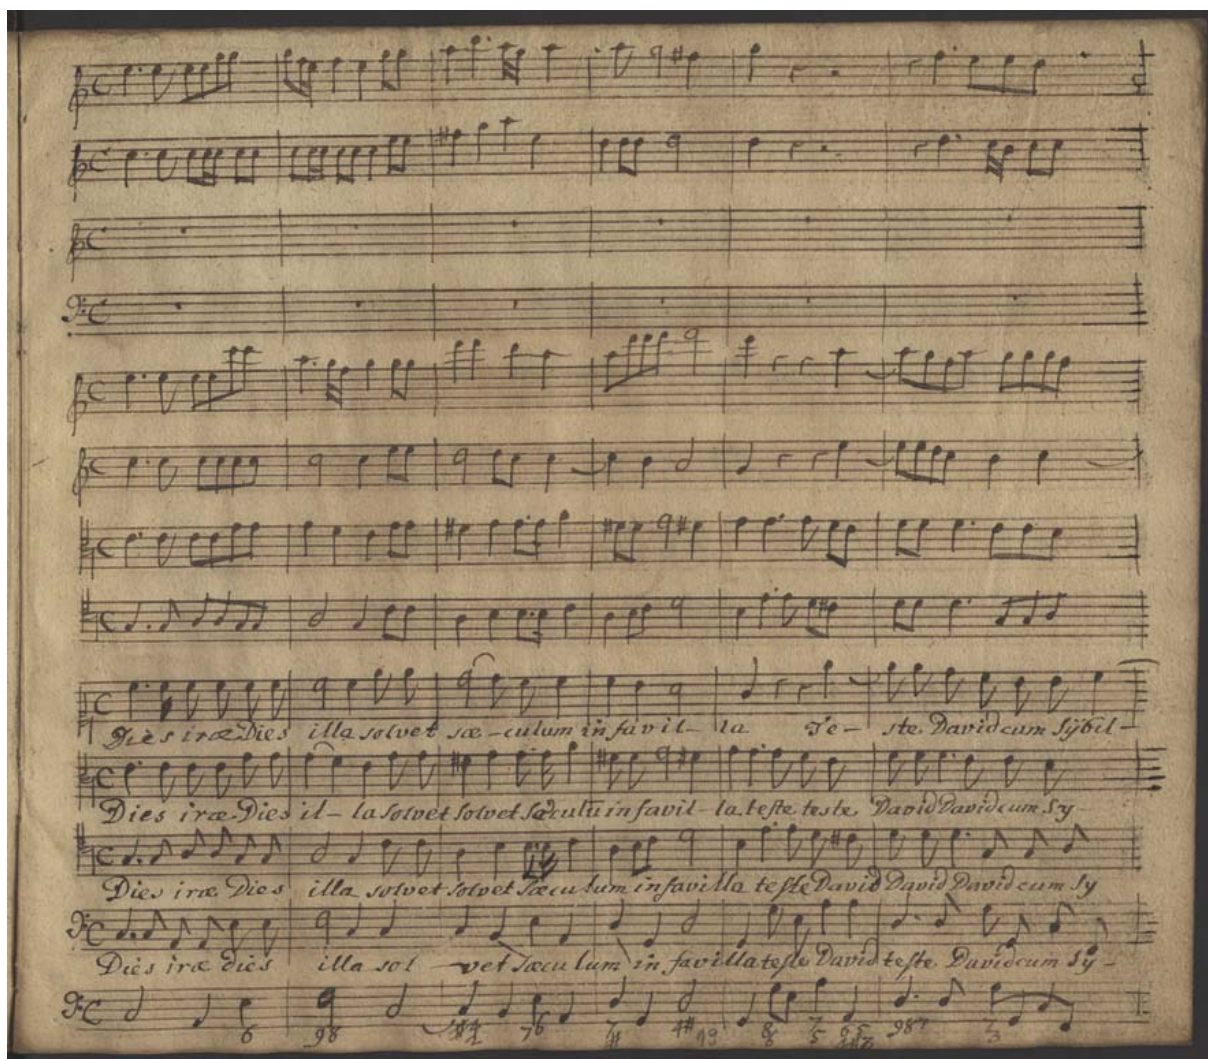 Dies iræ Dies illa solvet sæ-culum in favil- la Te- ste David cum Sybil-
Dies iræ Dies il- la solvet solvet sæculu in favil- la teste teste David David cum Sy-
Dies iræ Dies illa solvet solvet Sæculum in favilla teste David David David cum Sy
Dies iræ dies illa sol -vet Sæculum in favilla teste David teste David cum Sy-